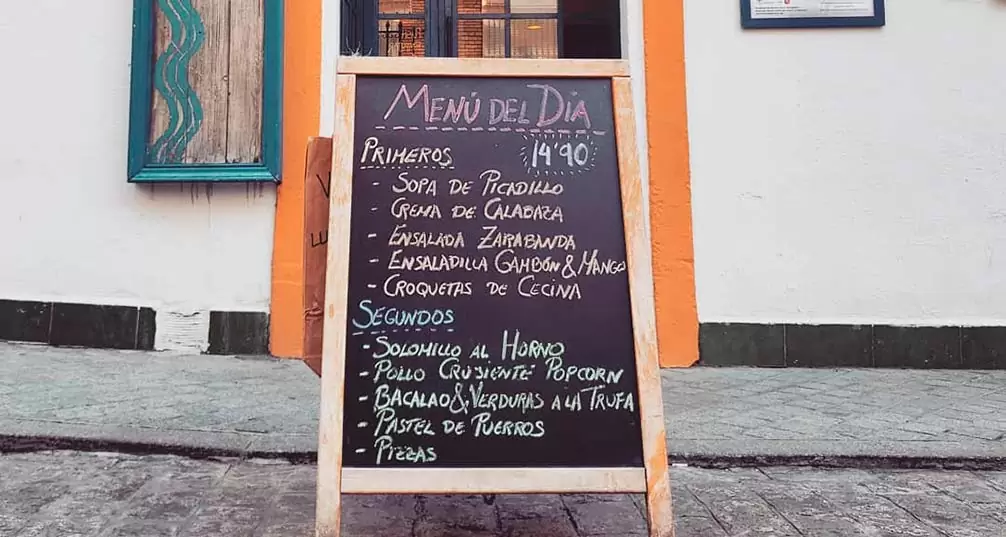 MENÚ DEL DÍA
14'90
PRIMEROS
- SOPA DE PICADILLO
- CREMA DE CALABAZA
- ENSALADA ZARABANDA
- ENSALADILLA GAMBÓN & MANGO
- CROQUETAS DE CECINA
SEGUNDOS
- SOLOMILLO AL HORNO
- POLLO CRUJIENTE POPCORN
- BACALAO & VERDURAS A LA TRUFA
- PASTEL DE PUERROS
- PIZZAS